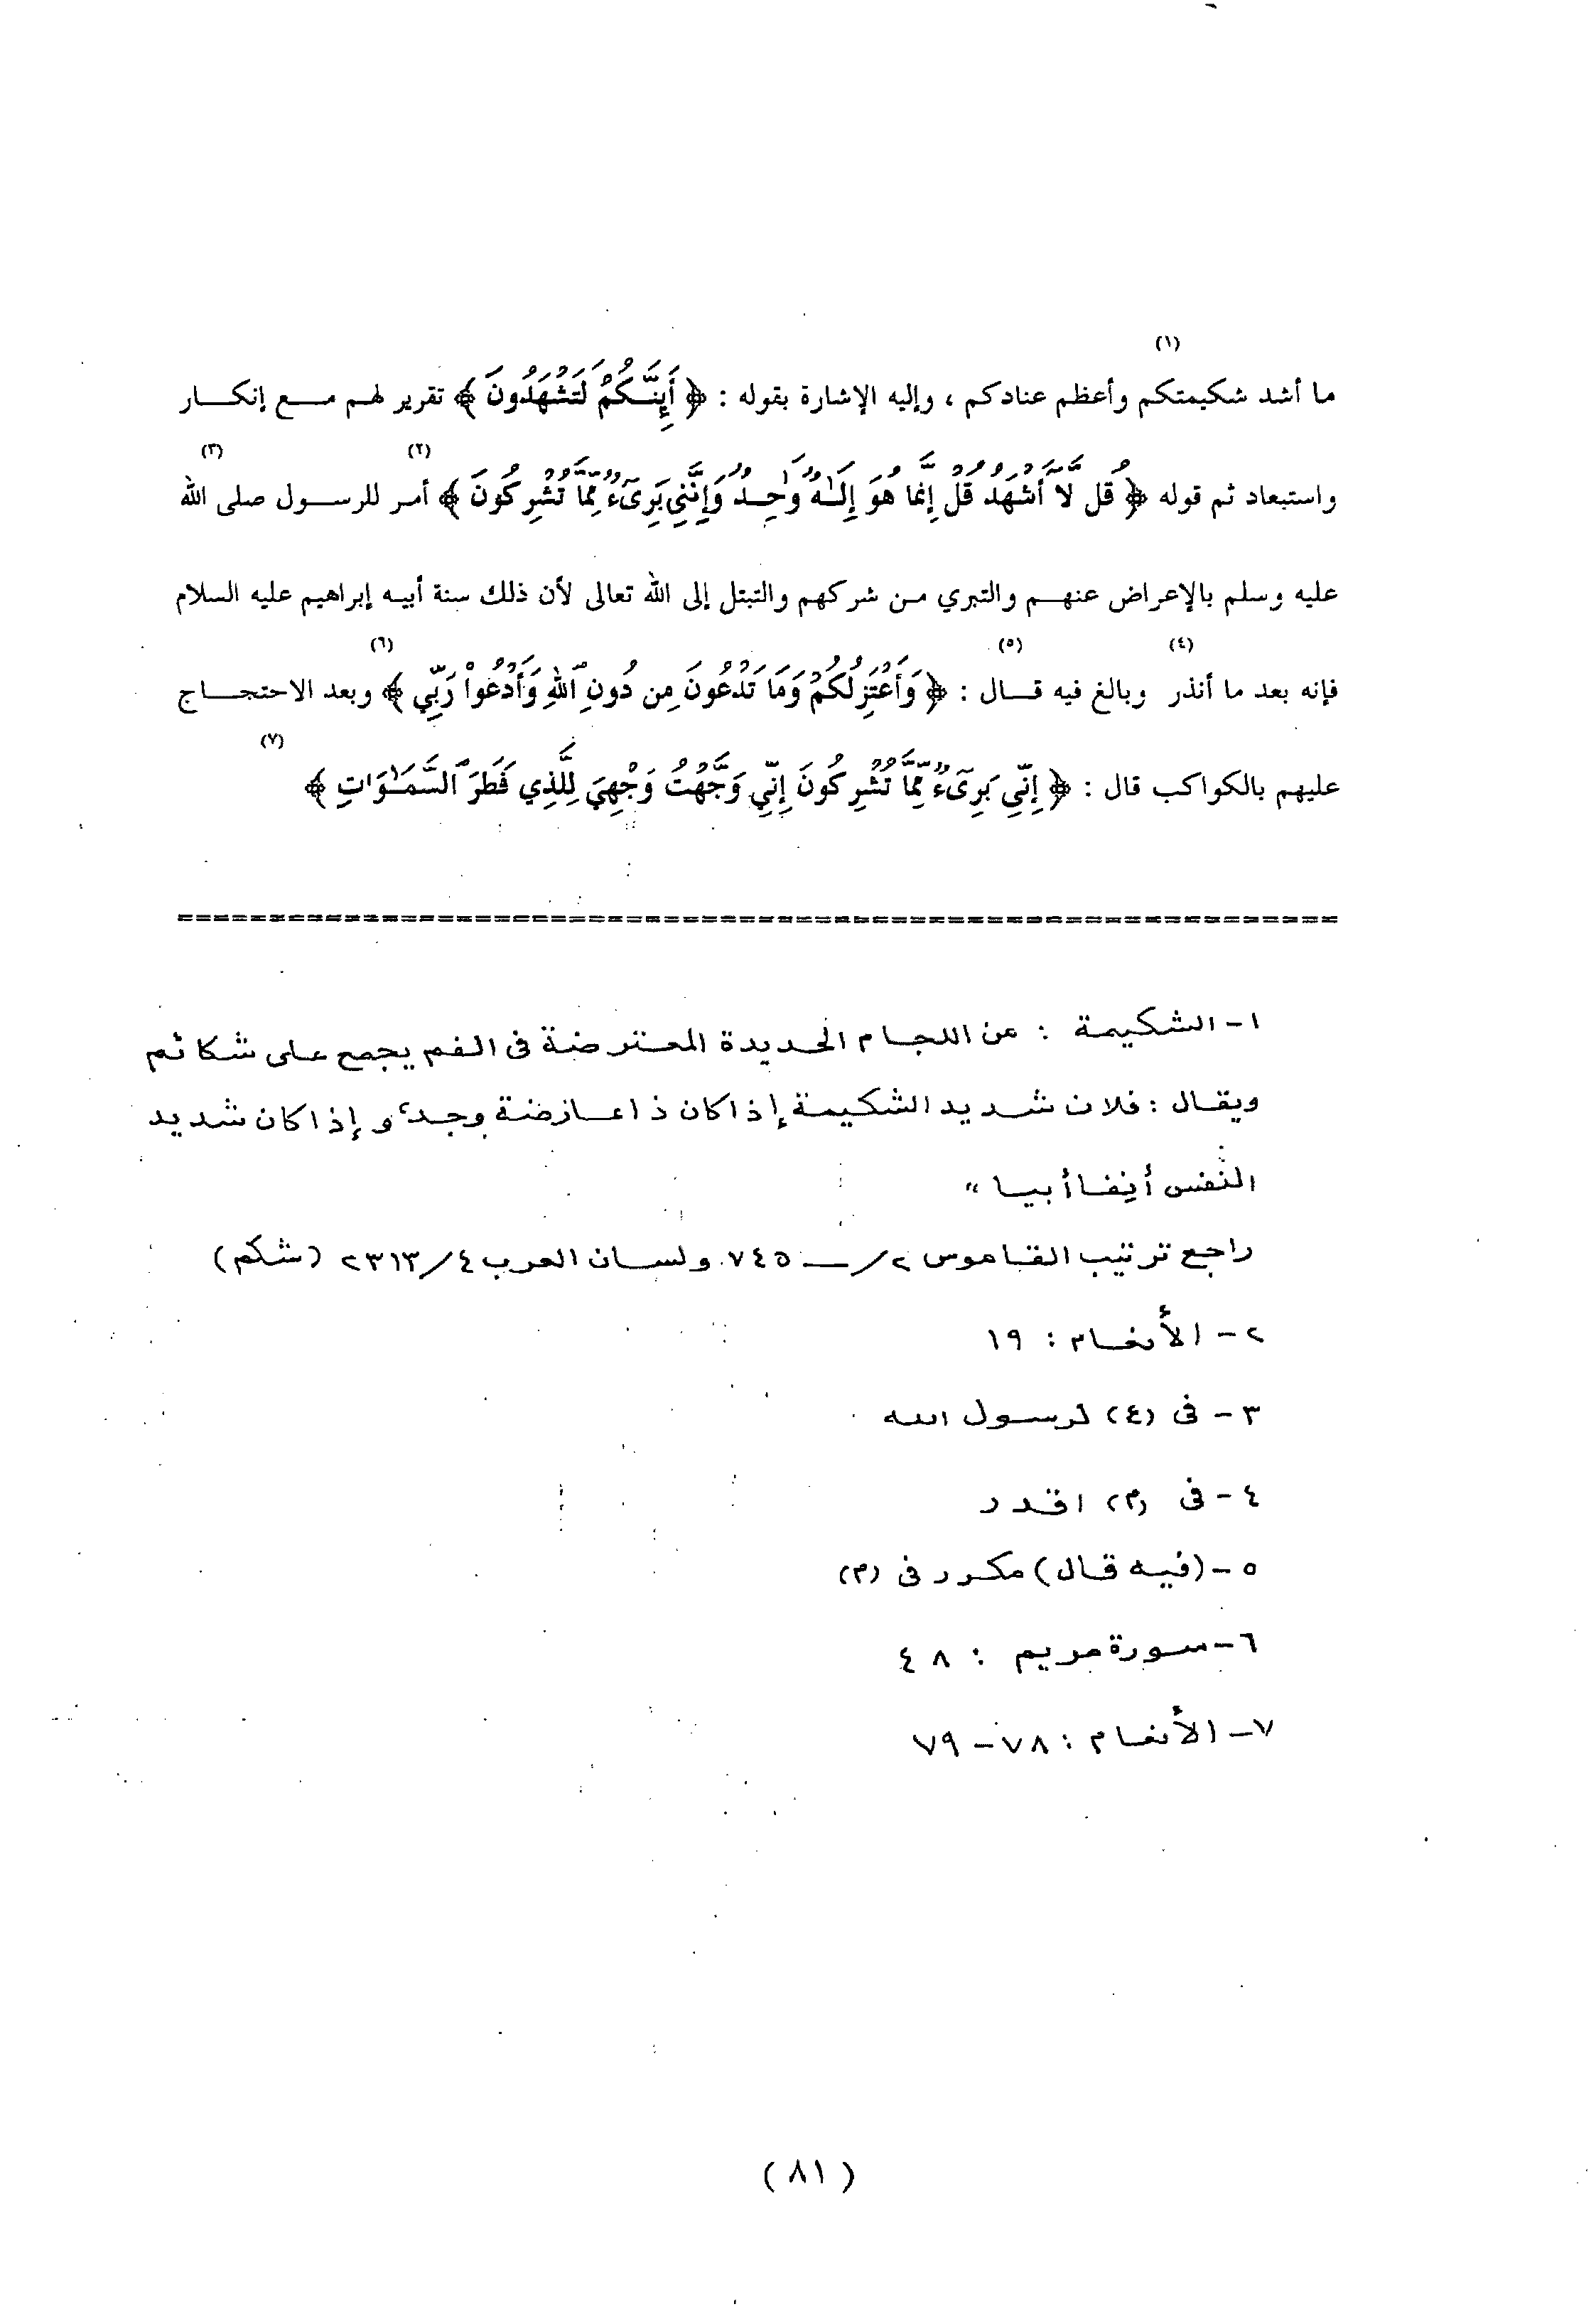 (١)
ما أشد شكيمتكم وأعظم عنادكم ، وإليه الإشارة بقوله : ﴿ أَئِنَّكُمْ لَتَشْهَدُونَ ﴾ تقرير لهم مع إنكار
(٢) (٣)
واستبعاد ثم قوله ﴿ قُل لَّا أَشْهَدُ قُلْ إِنَّمَا هُوَ إِلَـٰهٌ وَٰحِدٌ وَإِنَّنِي بَرِيٓءٌ مِّمَّا تُشْرِكُونَ ﴾ أمر للرسول صلى الله
عليه وسلم بالإعراض عنهم والتبري من شركهم والتبتل إلى الله تعالى لأن ذلك سنة أبيه إبراهيم عليه السلام
(٤) (٥) (٦)
فإنه بعد ما أنذر وبالغ فيه قال : ﴿ وَأَعْتَزِلُكُمْ وَمَا تَدْعُونَ مِن دُونِ ٱللَّهِ وَأَدْعُواْ رَبِّي ﴾ وبعد الاحتجاج
(٧)
عليهم بالكواكب قال : ﴿ إِنِّي بَرِيٓءٌ مِّمَّا تُشْرِكُونَ إِنِّي وَجَّهْتُ وَجْهِيَ لِلَّذِي فَطَرَ ٱلسَّمَـٰوَاتِ ﴾
١- الشكيمة : من اللجام الحديدة المعترضة فى الفم يجمع على شكائم
ويقال : فلان شديد الشكيمة إذا كان ذا عارضة وجد، وإذا كان شديد
النفس أنِفا أبيا "
راجع ترتيب القاموس ٢/ـــ ٧٤٥ ولسان العرب ٤/ ٢٣١٣ (شكم)
٢- الأنعام : ١٩
٣- فى (ع) لرسول الله
٤- فى (م) اقدر
٥- (فيه قال) مكرر فى (م)
٦- سورة مريم : ٤٨
٧- الأنعام : ٧٨ - ٧٩
( ٨١ )